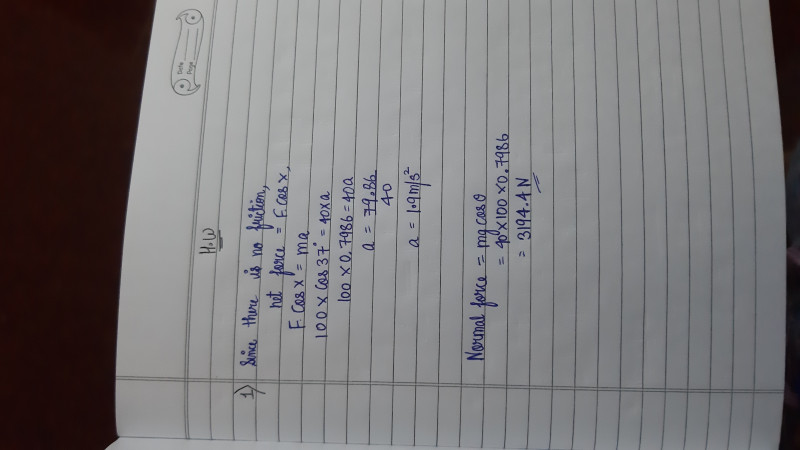 Date
Page
H.W
1) Since there is no friction,
net force = F cos x,
F cos x = ma
100 x cos 37° = 40xa
100 x 0.7986 = 40a
a = 79.86
40
a = 1.9m/s²
Normal force = mg cos θ
= 40 x 100 x 0.7986
= 3194.4 N